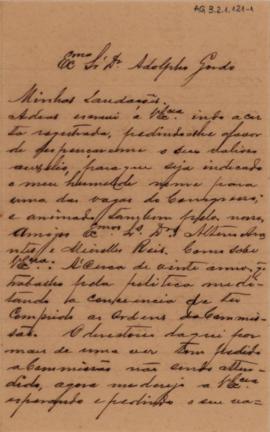 AG.3.2.1.121-1
Exmo Sr Dr Adolpho Gordo
Minhas Saudações
A dias escrevi á V. Excia. indo a car
ta registrada, pedindo-lhe o favor
de dispensar-me o seu valioso
auxilio, para que seja indicado
o meu humilde nome para
uma das vagas do Congresso;
e animado tambem pelos nossos
Amigos Exmos Srs Drs Altino Aran
tes e Meirelles Reis. Como sabe
V. Excia. A cerca de vinte annos,
trabalho pela politica
a consciencia de ter
Cumprido as Ordens da Commis
são. O directorio daqui por
mais de uma ver tem pedido
a Commissão não sendo atten
dido, agora me dirijo a V. Excia
esperando e pedindo o seu va-